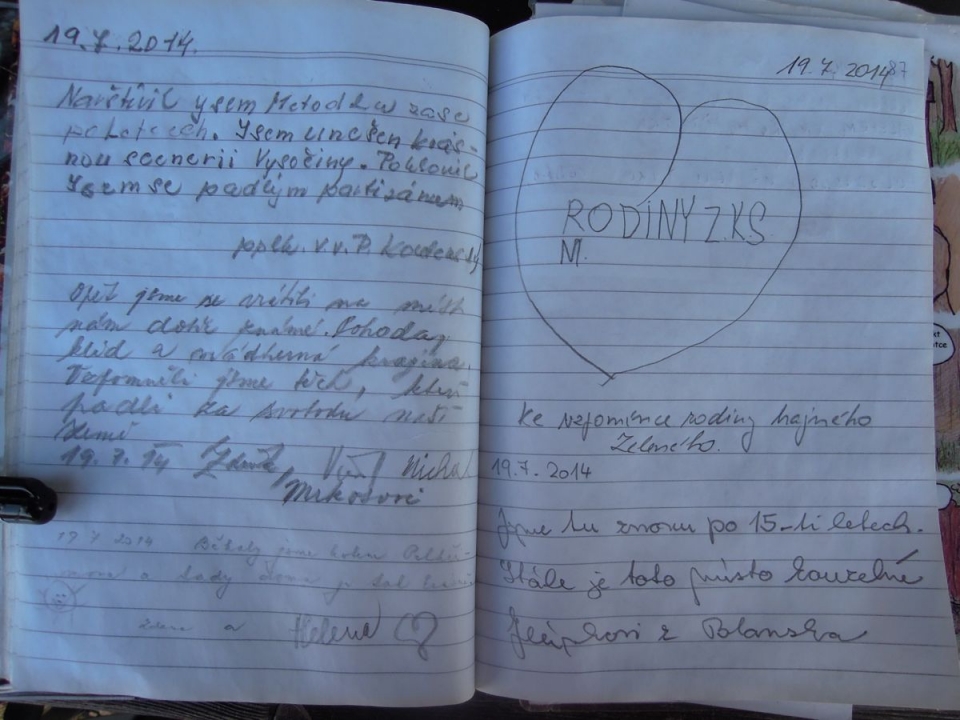 19.7.2014.
Navštívil jsem Metodku zase
po letech. Jsem unešen krás-
nou scenerii Vysočiny. Poklonil
Jsem se padlým partizánum
pplk. v.v. P.
Opět jsme se vrátili na místa
nám dobře známé. Pohoda,
klid a nádherná krajina.
Vzpomněli jsme těch, kteří
padli za svobodu naší
země
19.7.14 Zdeněk, Michal
Mrkosovi
2014 Běhaly jsme kolem
a tady
Zdena a Helena
19.7.2014 87
RODINY Z KS
M.
ke vzpomínce rodiny hajného
Zeleného.
19.7.2014
Jsme tu znovu po 15-ti letech.
Stále je toto místo kouzelné
z Polanska